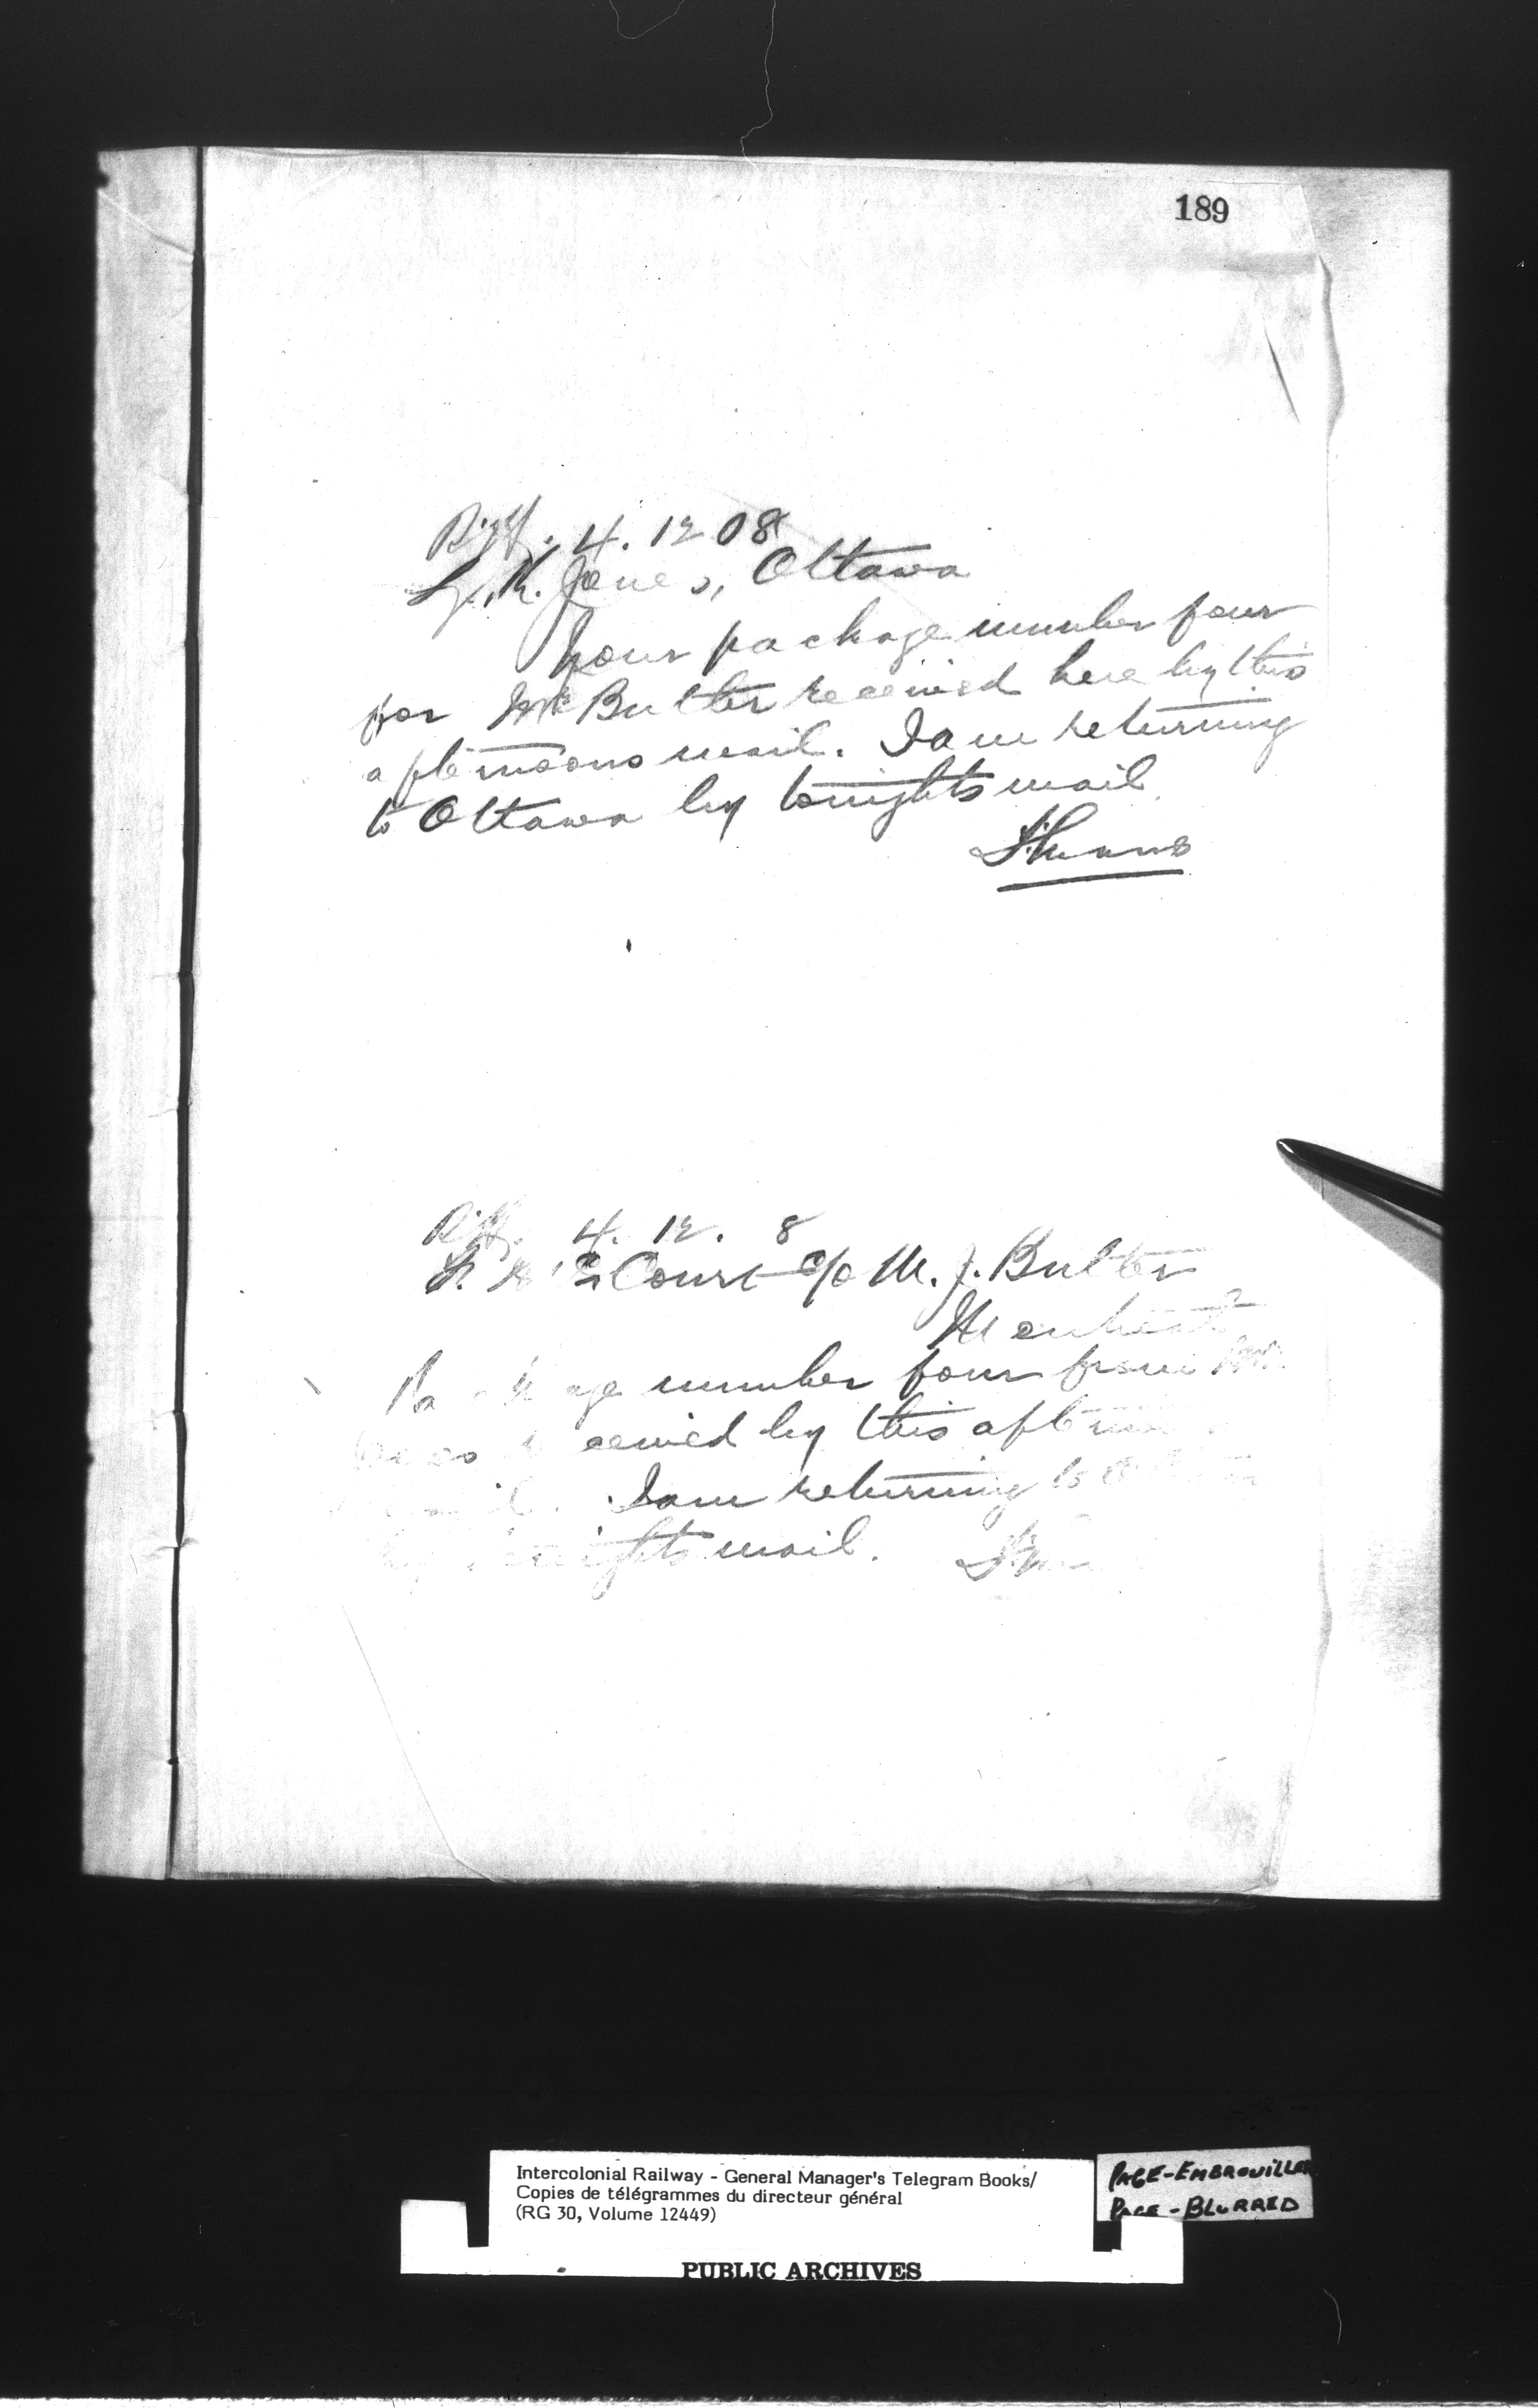 189
4. 12 08
L. K. Jones, Ottawa
Your package number four
for Mr Butler received here by this
afternoons mail. I am returning
to Ottawa by tonights mail.
4. 12. 8
Court c/o M. J. Butler
Montreal
Package number four from
received by this
I am returning to
mail.
Intercolonial Railway - General Manager's Telegram Books/
Copies de télégrammes du directeur général
(RG 30, Volume 12449)
PUBLIC ARCHIVES
PAGE-EMBROUILLEE
PAGE-BLURRED